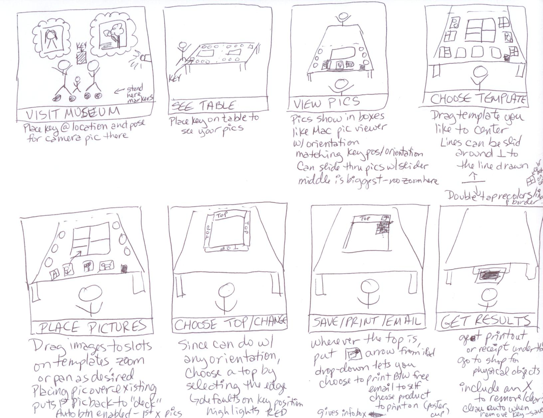 KEY
stand
here
markers
VISIT MUSEUM
Place key @ location and pose
for camera pic there
KEY
SEE TABLE
Place key on table to
see your pics
VIEW PICS
Pics show in boxes
like Mac pic viewer
w/orientation
matching key pos/orientation
Can slide thru pics w/slider
middle is biggest - no zoom here
CHOOSE TEMPLATE
Drag template you
like to center
Lines can be slid
around ⊥ to
the line drawn
Double tap recolors
border
PLACE PICTURES
Drag images to slots
on templates zoom
or pan as desired
Placing pic over existing
puts pic back to "deck"
Auto btn enabled - 1st x pics
TOP
CHOOSE TOP/CHANGE
Since can do w/
any orientation,
choose a top by
selecting the edge
defaults on key position
highlights RED
TOP
SAVE/PRINT/EMAIL
wherever the top is,
put arrow from
drop-down lets you
choose to print
email to self
choose product
to print on
gives
GET RESULTS
get printout
or receipt under
go to shop for
physical objects
include an X
to remove/clear
when